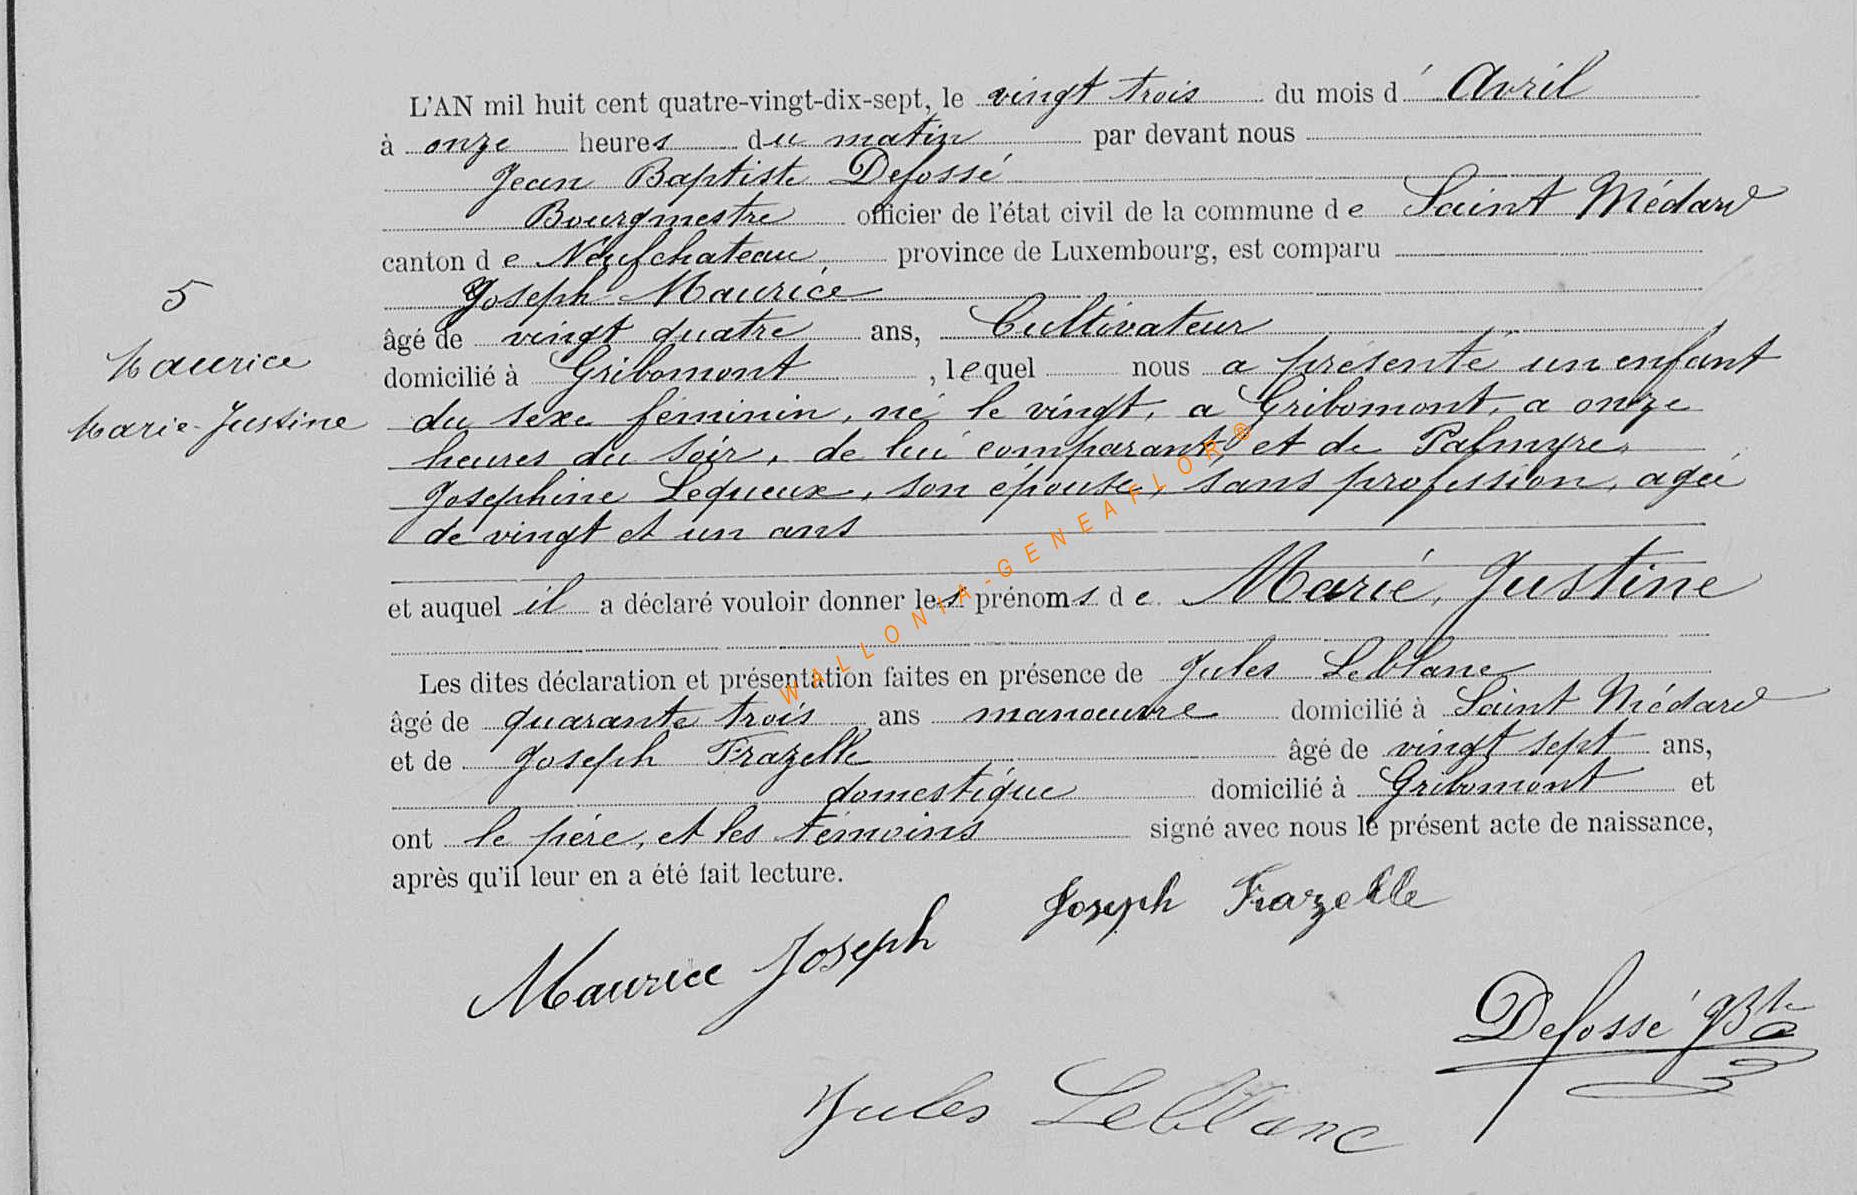 L'AN mil huit cent quatre-vingt-dix-sept, le vingt trois du mois d' Avril
à onze heures du matin par devant nous
Jean Baptiste Defossé
Bourgmestre officier de l'état civil de la commune de Saint Médard
canton de Neufchateau, province de Luxembourg, est comparu
Joseph Maurice
âgé de vingt quatre ans, Cultivateur
domicilié à Gribomont, lequel nous a présenté un enfant
du sexe féminin, né le vingt, a Gribomont, a onze
heures du soir, de lui comparant et de Palmyre
Josephine Lequeux, son épouse, sans profession, agée
de vingt et un ans
et auquel il a déclaré vouloir donner les prénoms de Marie, Justine
Les dites déclaration et présentation faites en présence de Jules Leblanc
âgé de quarante trois ans manoeuvre domicilié à Saint Médard
et de Joseph Frazelle âgé de vingt sept ans,
domestique domicilié à Gribomont et
ont le père, et les témoins signé avec nous le présent acte de naissance,
après qu'il leur en a été fait lecture.
5
Maurice
Marie-Justine
Joseph Frazelle
Maurice Joseph
Defossé JBte
Jules Leblanc
WALLONIA-GENEAFLOR®